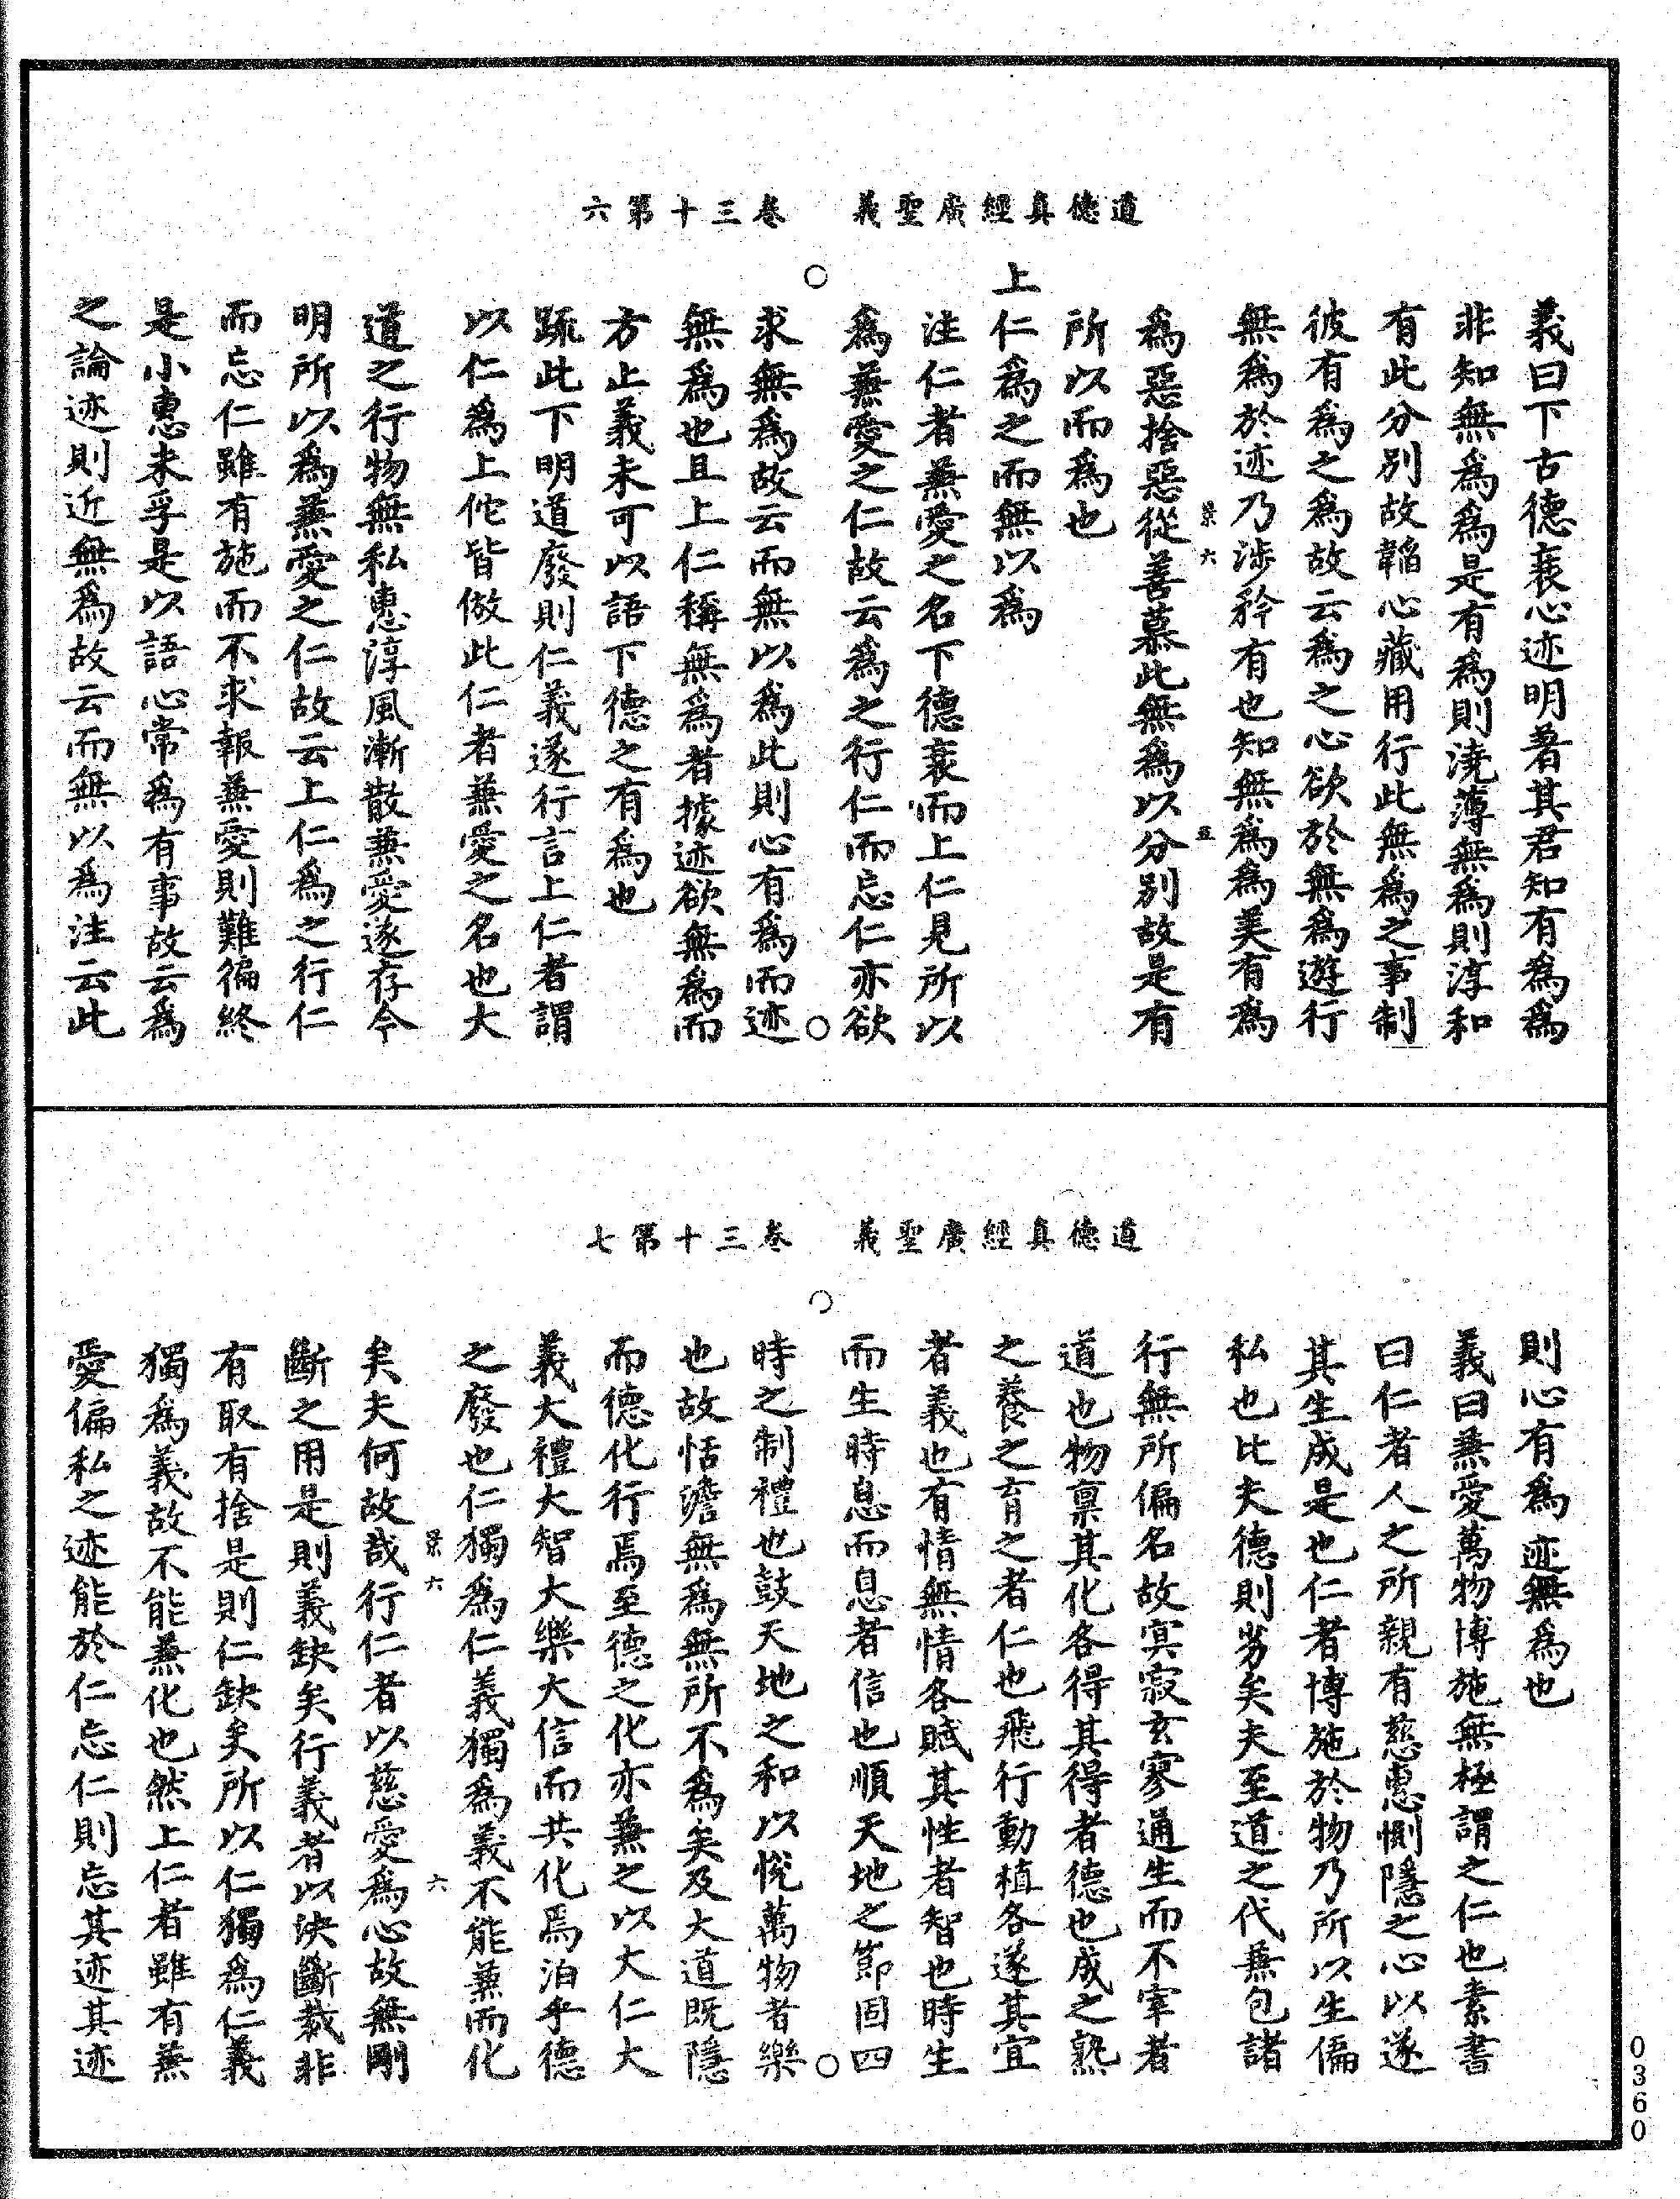 道德真經廣聖義　卷三十第六
義曰下古德衰心迹明著其君知有爲爲
非知無爲爲是有爲則澆薄無爲則淳和
有此分別故韜心藏用行此無爲之事制
彼有爲之爲故云爲之心欲於無爲遊行
無爲於迹乃涉矜有也知無爲爲美有爲
六
爲惡捨惡從善慕此無爲以分別故是有
所以而爲也
上仁爲之而無以爲
注仁者兼愛之名下德衰而上仁見所以
爲兼愛之仁故云爲之行仁而忘仁亦欲
求無爲故云而無以爲此則心有爲而迹
無爲也且上仁稱無爲者據迹欲無爲而
方止義未可以語下德之有爲也
疏此下明道廢則仁義遂行言上仁者謂
以仁爲上佗皆倣此仁者兼愛之名也大
道之行物無私惠淳風漸散兼愛遂存今
明所以爲兼愛之仁故云上仁爲之行仁
而忘仁雖有施而不求報兼愛則難徧終
是小惠未孚是以語心常爲有事故云爲
之論迹則近無爲故云而無以爲注云此
道德真經廣聖義　卷三十第七
則心有爲迹無爲也
義曰兼愛萬物博施無極謂之仁也素書
曰仁者人之所親有慈惠惻隱之心以遂
其生成是也仁者博施於物乃所以生偏
私也比夫德則劣矣夫至道之代兼包諸
行無所偏名故寂玄寥通生而不宰者
道也物禀其化各得其得者德也成之熟
之養之育之者仁也飛行動植各遂其宜
者義也有情無情各賦其性者智也時生
而生時息而息者信也順天地之節固四
時之制禮也鼓天地之和以悅萬物者樂
也故恬澹無爲無所不爲矣及大道既隱
而德化行焉至德之化亦兼之以大仁大
義大禮大智大樂大信而共化焉洎乎德
之廢也仁獨爲仁義獨爲義不能兼而化
六　六
矣夫何故哉行仁者以慈愛爲心故無剛
斷之用是則義缺矣行義者以決斷裁非
有取有捨是則仁缺矣所以仁獨爲仁義
獨爲義故不能兼化也然上仁者雖有兼
愛偏私之迹能於仁忘仁則忘其迹其迹
0360